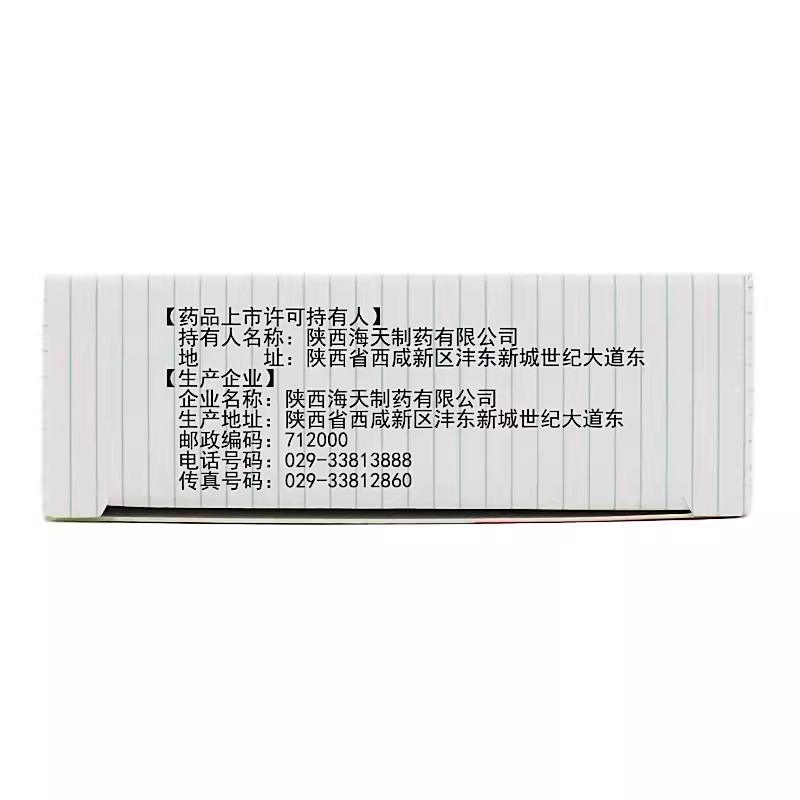 【药品上市许可持有人】
持有人名称：陕西海天制药有限公司
地 址：陕西省西咸新区沣东新城世纪大道东
【生产企业】
企业名称：陕西海天制药有限公司
生产地址：陕西省西咸新区沣东新城世纪大道东
邮政编码：712000
电话号码：029-33813888
传真号码：029-33812860